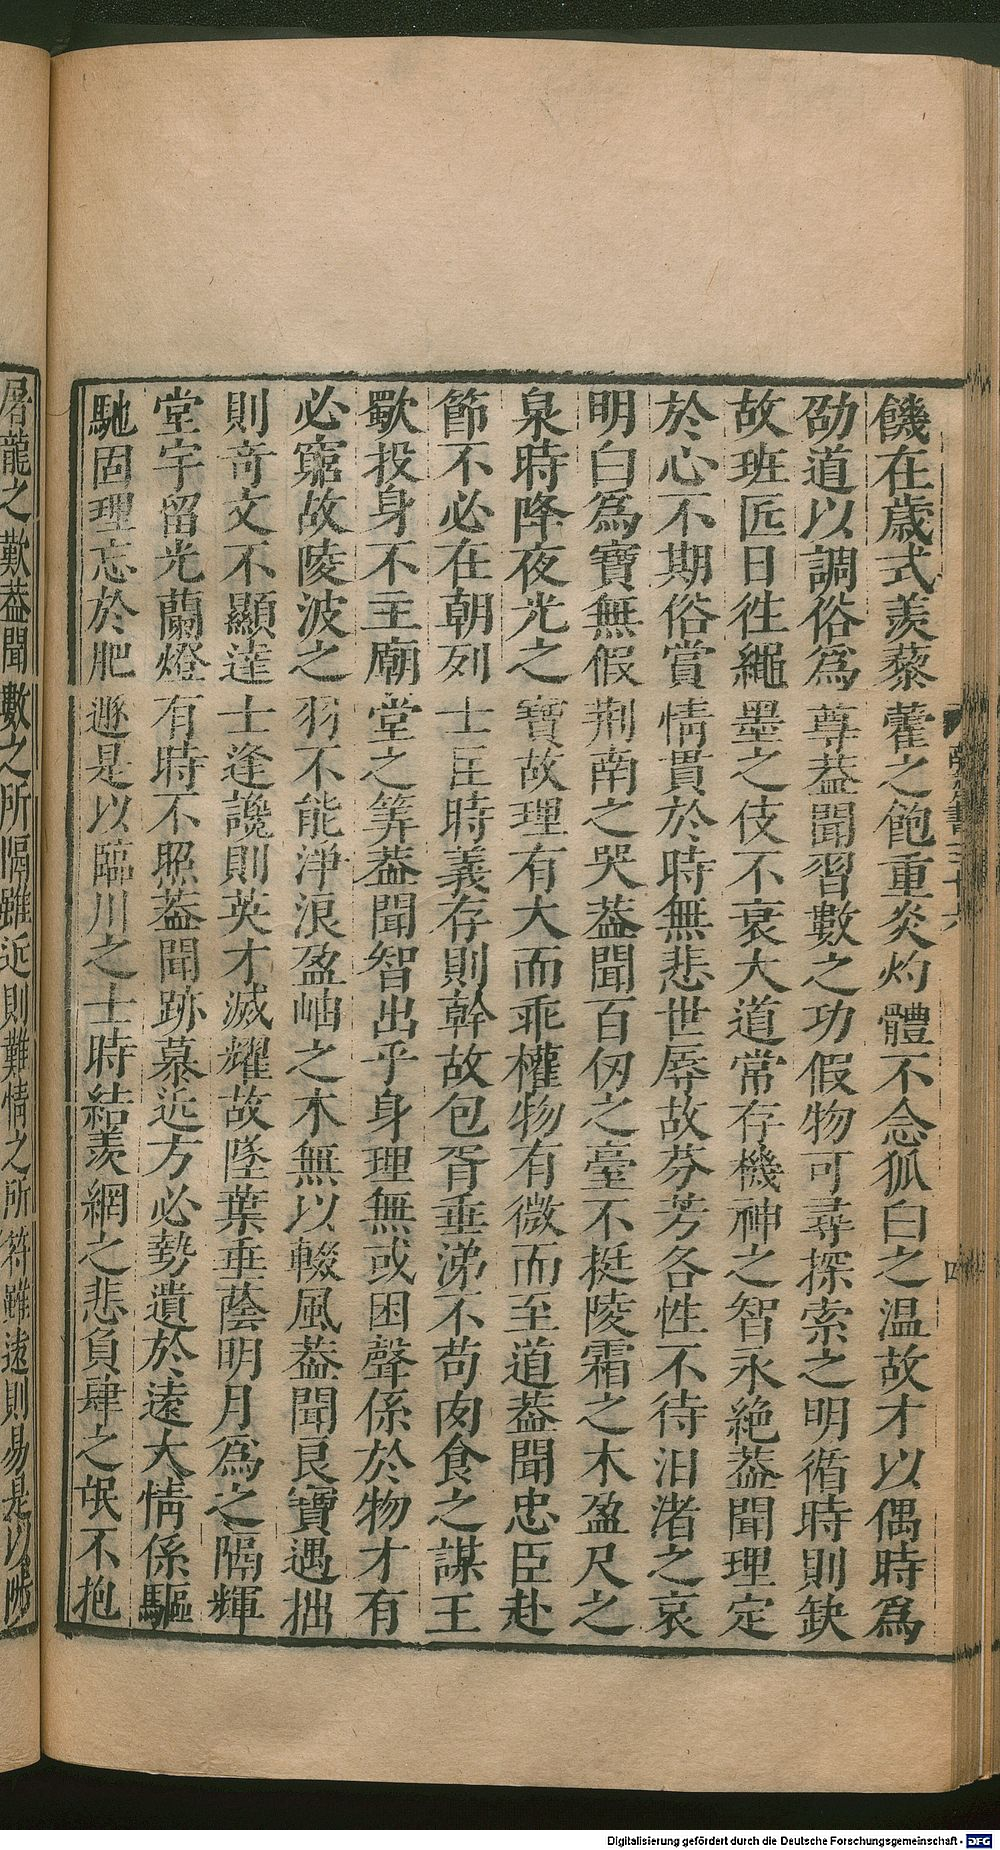 饑在歲式羨藜藿之飽重炎灼體不念狐白之温故才以偶時爲
劭道以調俗爲尊葢聞習數之功假物可尋探索之明循時則缺
故班匠日徃繩墨之伎不衰大道常存機神之智永絶葢聞理定
於心不期俗賞情貫於時無悲世辱故芬芳各性不待汨渚之哀
明白爲寶無假荆南之哭葢聞百仞之臺不挺陵霜之木盈尺之
泉時降夜光之寶故理有大而乖權物有微而至道葢聞忠臣赴
節不必在朝列士匡時義存則幹故包胥垂涕不苟肉食之謀王
歜投身不主廟堂之筭葢聞智出乎身理無或困聲係於物才有
必窮故陵波之羽不能淨浪盈岫之木無以輟風葢聞艮寶遇拙
則奇文不顯達士逢讒則英才滅耀故墜葉垂蔭明月爲之隔輝
堂宇留光蘭燈有時不照葢聞跡慕近方必勢遺於遠大情係驅
馳固理忘於肥遯是以臨川之士時結羨網之悲負肆之氓不抱
屠龍之歎葢聞數之所隔雖近則難情之所符雖遠則易是以
四
Digitalisierung gefördert durch die Deutsche Forschungsgemeinschaft - DFG